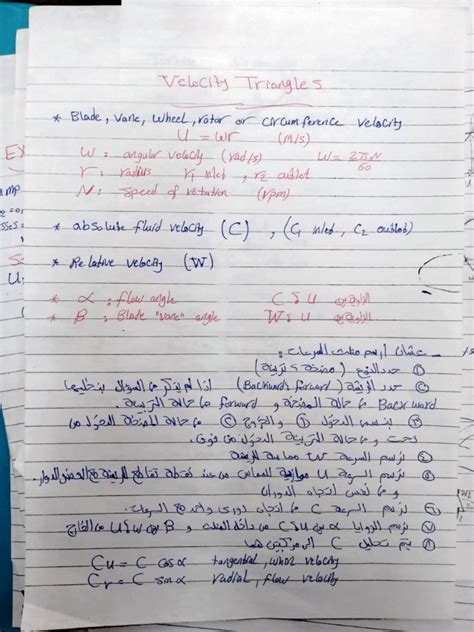 Velocity Triangles
* Blade, Vane, wheel, rotor or circumference velocity
U = wr (m/s)
W: angular velocity (rad/s) W = 2πN/60
r: radius r1 inlet, r2 outlet
N: speed of rotation (rpm)
* absolute fluid velocity (C), (C1 inlet, C2 outlet)
* Relative velocity (W)
* α: flow angle الزاوية بين U و C
* B: Blade "Vane" angle الزاوية بين U و W
عشان أرسم مثلث السرعات:
① حدد النوع (مضخة و تربينة)
② حدد الريشة (Backward, forward) اذا لم يذكر في السؤال بنخليها
Backward في حالة المضخة و forward في حالة التربينة
③ بنسمي الدخول ① والخروج ② في حالة المضخة الدخول من
تحت و في حالة التربينة الدخول من فوق.
④ نرسم السرعة W مماسة للريشة
⑤ نرسم السرعة U موازية للمماس من عند نقطة تقاطع الريشة مع العضو الدوار.
و في نفس اتجاه الدوران
⑥ نرسم السرعة C
⑦ نرسم الزوايا α بين U و C من داخل المثلث و B بين U و W من الخارج
⑧ يتم تحليل C إلى مركبتين هما
Cu = C cosα tangential, whirl velocity
Cr = C sinα radial, flow velocity